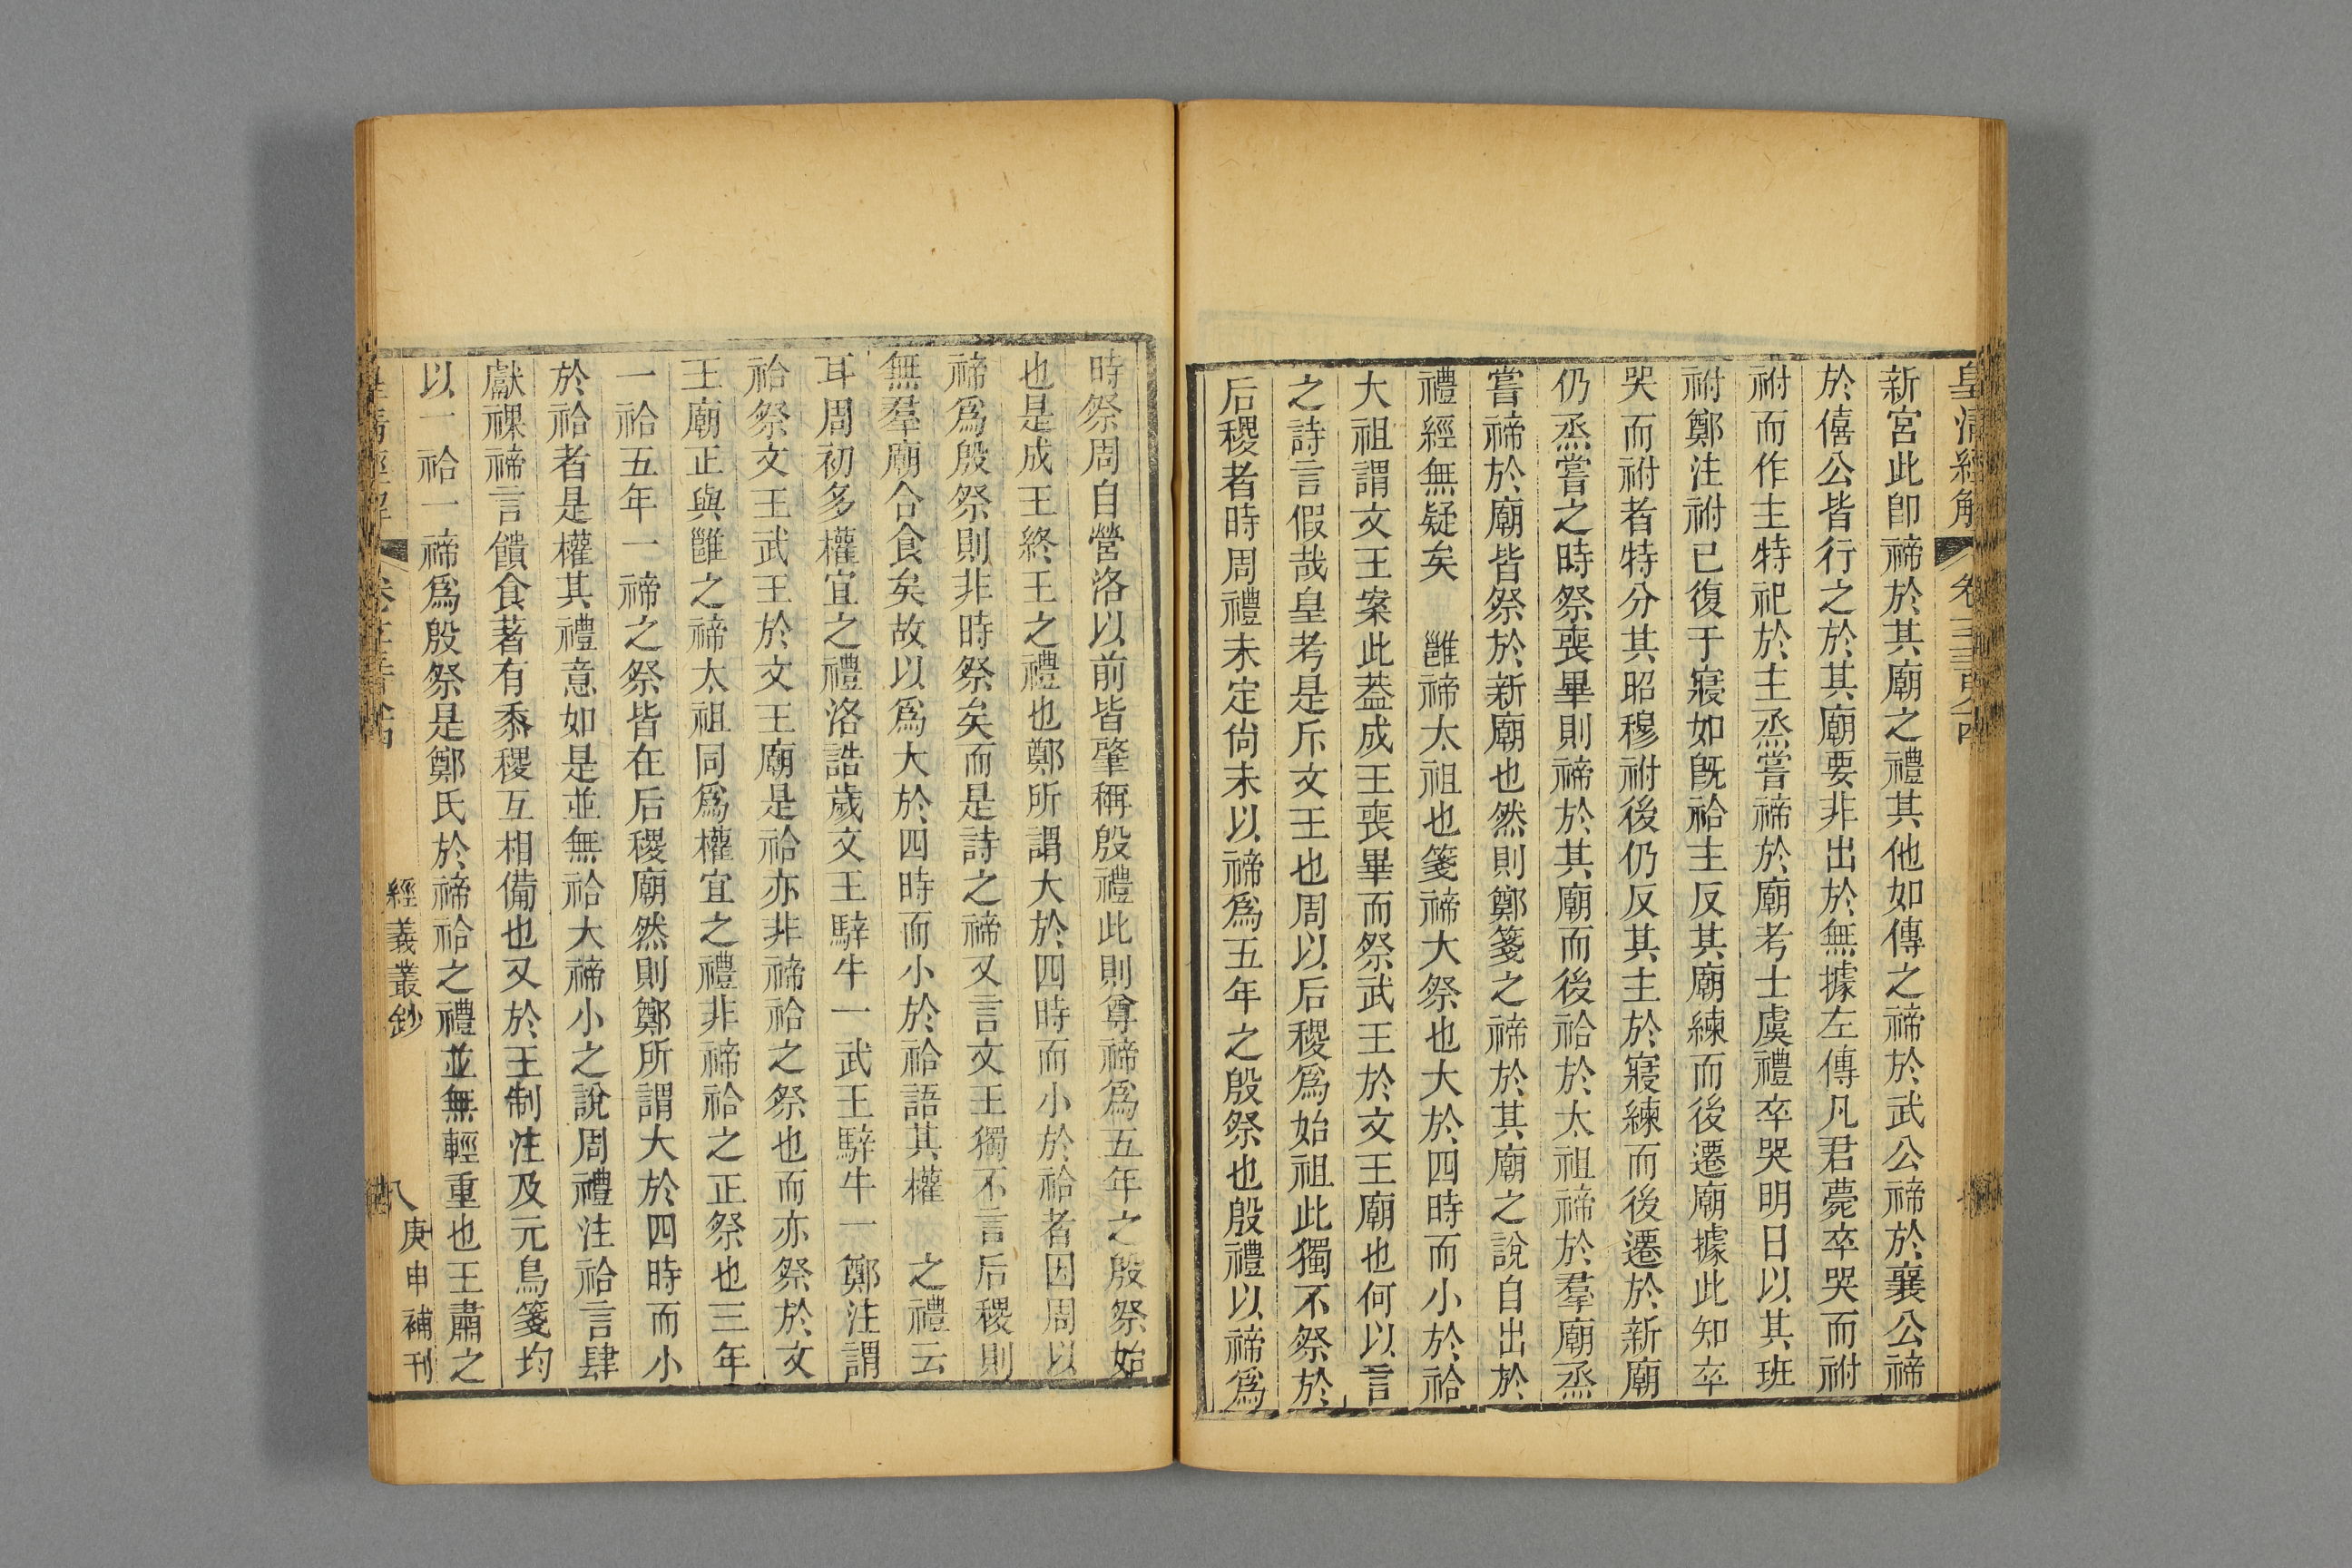 皇清經解
新宮此卽禘於其廟之禮其他如傳之禘於武公禘於襄公禘
於僖公皆行之於其廟要非出於無據左傳凡君薨卒哭而祔
祔而作主特祀於主烝嘗禘於廟考士虞禮卒哭明日以其班
祔鄭注祔已復于寢如旣祫主反其廟練而後遷廟據此知卒
哭而祔者特分其昭穆祔後仍反其主於寢練而後遷於新廟
仍烝嘗之時祭喪畢則禘於其廟而後祫於太祖禘於羣廟烝
嘗禘於廟皆祭於新廟也然則鄭箋之禘於其廟之說自出於
禮經無疑矣　雝禘太祖也箋禘大祭也大於四時而小於祫
大祖謂文王案此葢成王喪畢而祭武王於文王廟也何以言
之詩言假哉皇考是斥文王也周以后稷爲始祖此獨不祭於
后稷者時周禮未定尙未以禘爲五年之殷祭也殷禮以禘爲
時祭周自營洛以前皆肇稱殷禮此則尊禘爲五年之殷祭始
也是成王終王之禮也鄭所謂大於四時而小於祫者因周以
禘爲殷祭則非時祭矣而是詩之禘又言文王獨不言后稷則
無羣廟合食矣故以爲大於四時而小於祫語其權　之禮云
耳周初多權宜之禮洛誥歲文王騂牛一武王騂牛一鄭注謂
祫祭文王武王於文王廟是祫亦非禘祫之祭也而亦祭於文
王廟正與雝之禘太祖同爲權宜之禮非禘祫之正祭也三年
一祫五年一禘之祭皆在后稷廟然則鄭所謂大於四時而小
於祫者是權其禮意如是並無祫大禘小之說周禮注祫言肆
獻祼禘言饋食著有黍稷互相備也又於王制注及元鳥箋均
以一祫一禘爲殷祭是鄭氏於禘祫之禮並無輕重也王肅之
經義叢鈔
八
庚申補刊